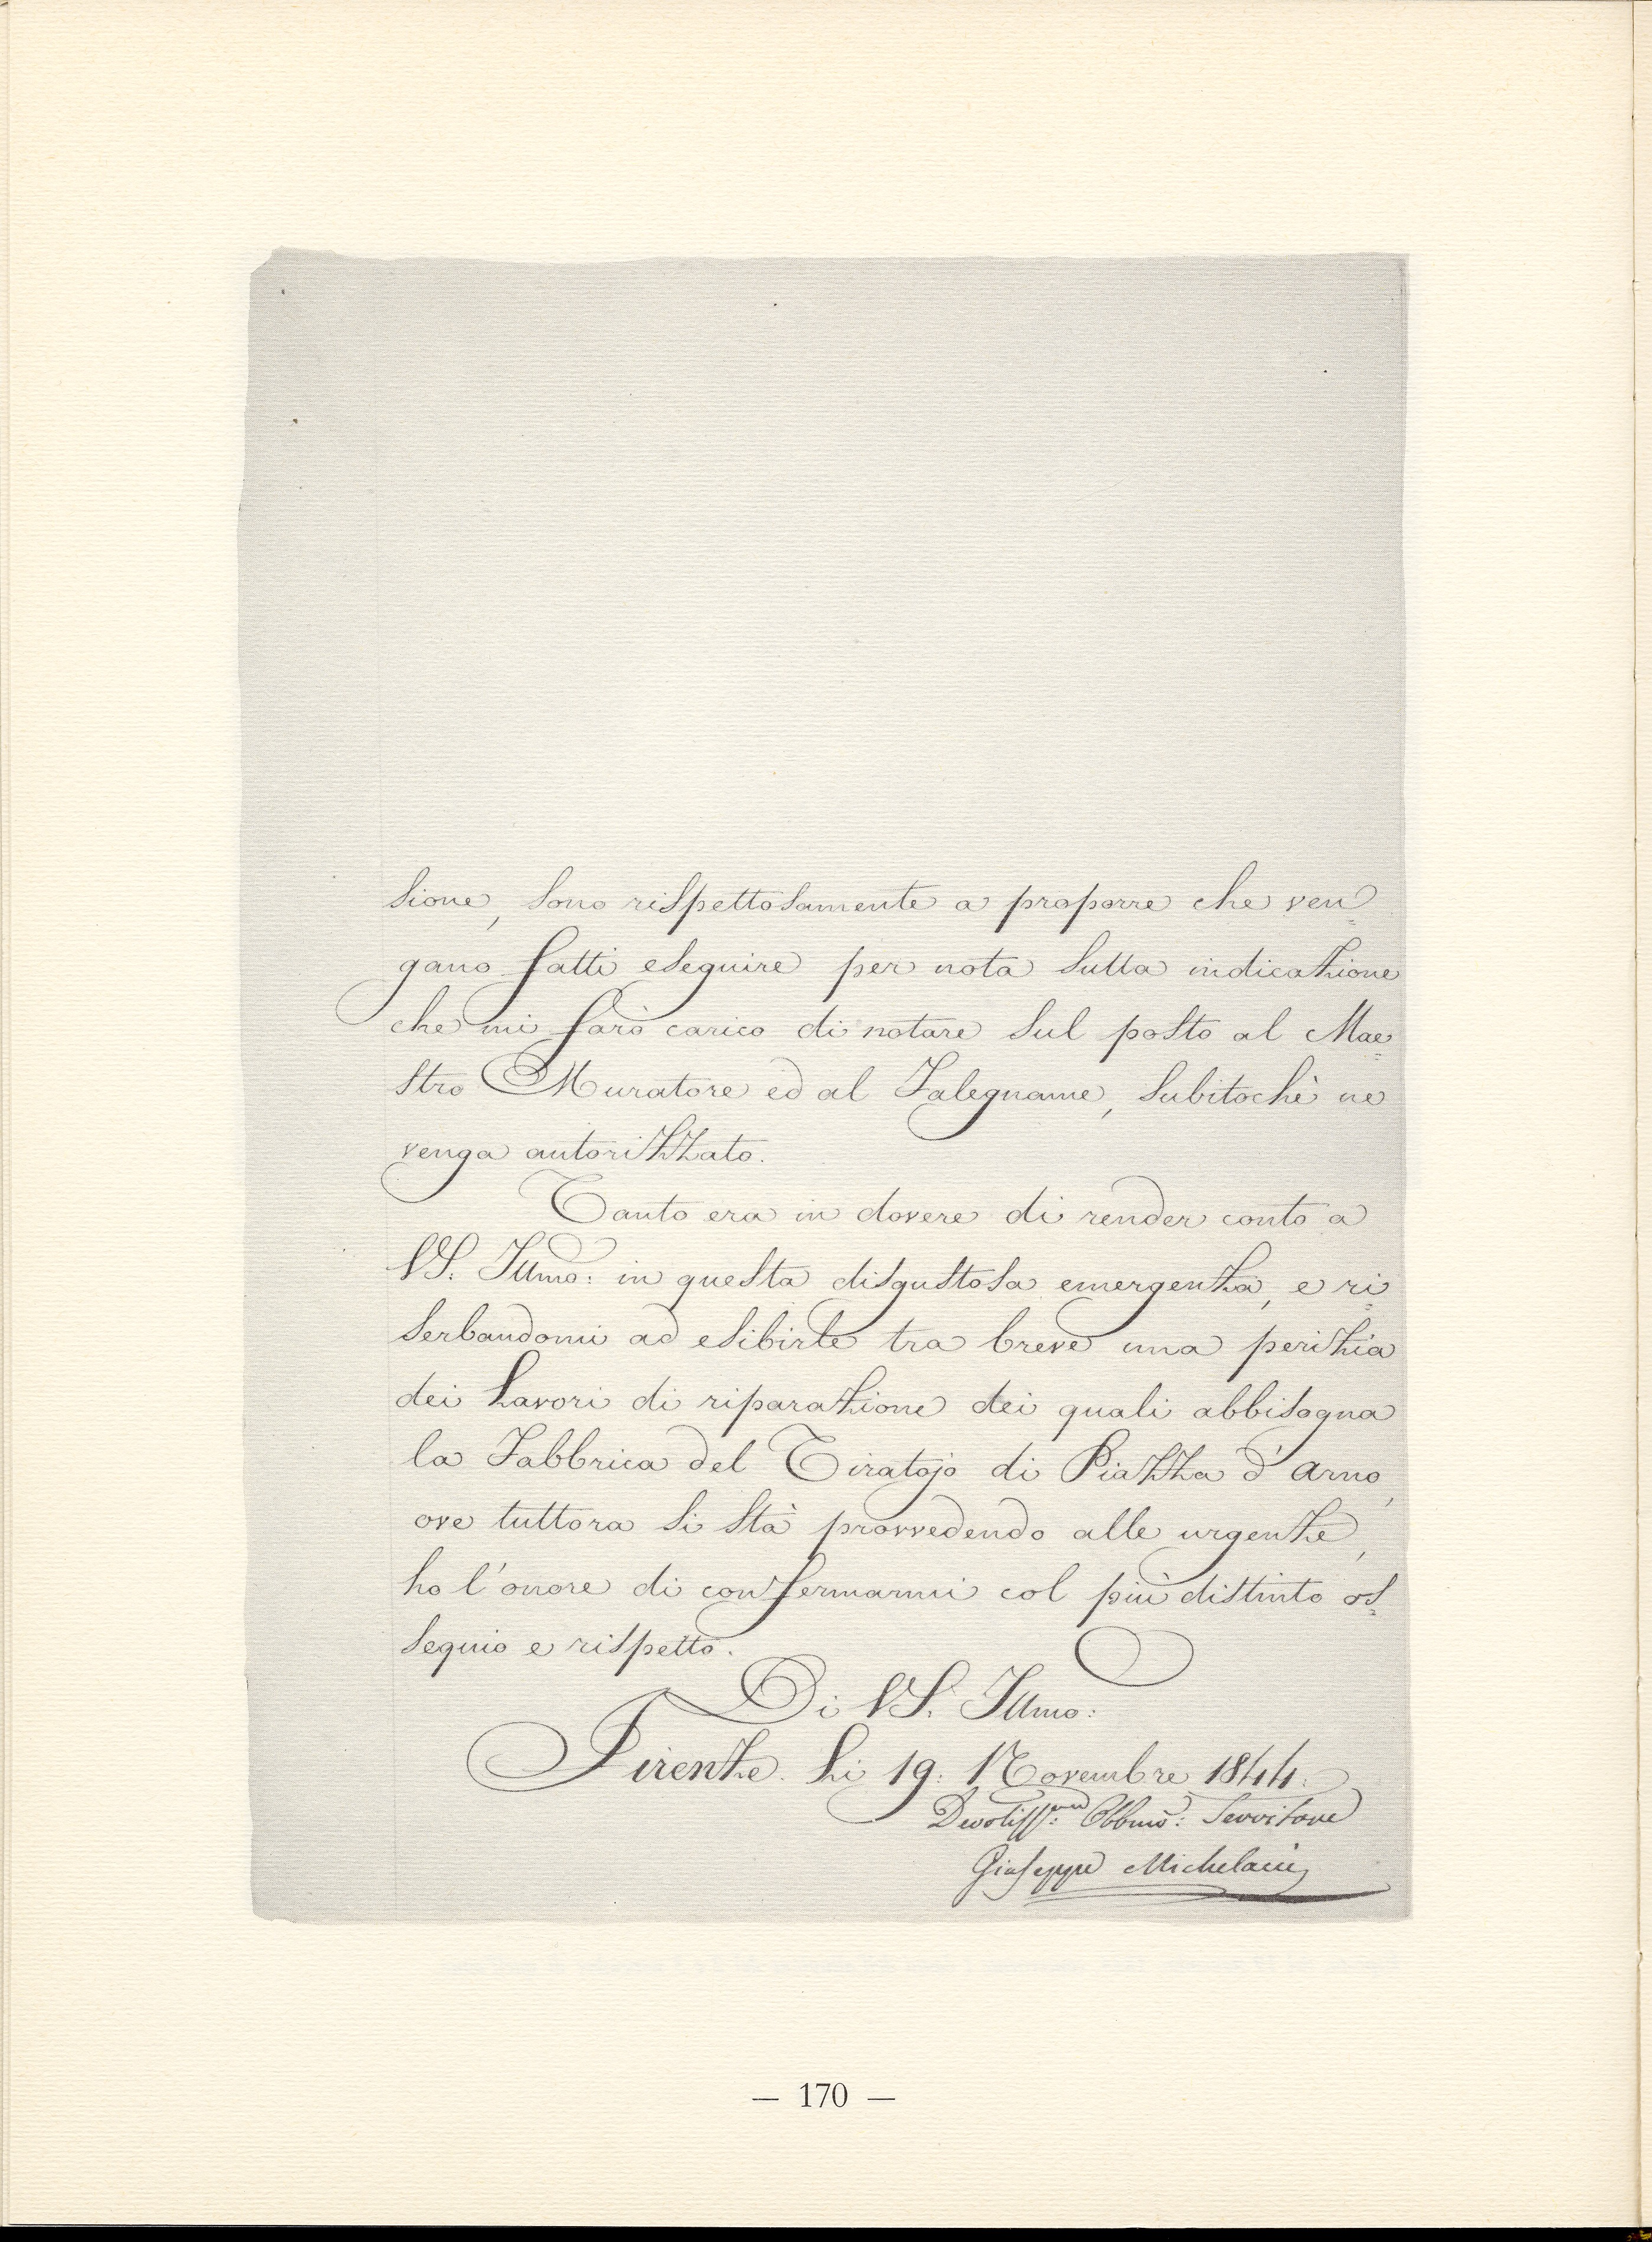 sione, sono rispettosamente a proporre che ven=
gano fatti eseguire per nota sulla indicazione
che mi farò carico di notare sul posto al Mae=
stro Muratore ed al Falegname, subitochè ne
venga autorizzato.
Tanto era in dovere di render conto a
VS. Illmo: in questa disgustosa emergenza, e ri=
serbandomi ad esibirle tra breve una perizia
dei Lavori di riparazione dei quali abbisogna
la Fabbrica del Tiratojo di Piazza d'Arno,
ove tuttora si stà provvedendo alle urgenze,
ho l'onore di confermarmi col più distinto os=
sequio e rispetto.
Di VS. Illmo:
Firenze. Li 19. Novembre 1844.
Devotiss:mo Obbmo: Servitore
Giuseppe Michelacci
— 170 —